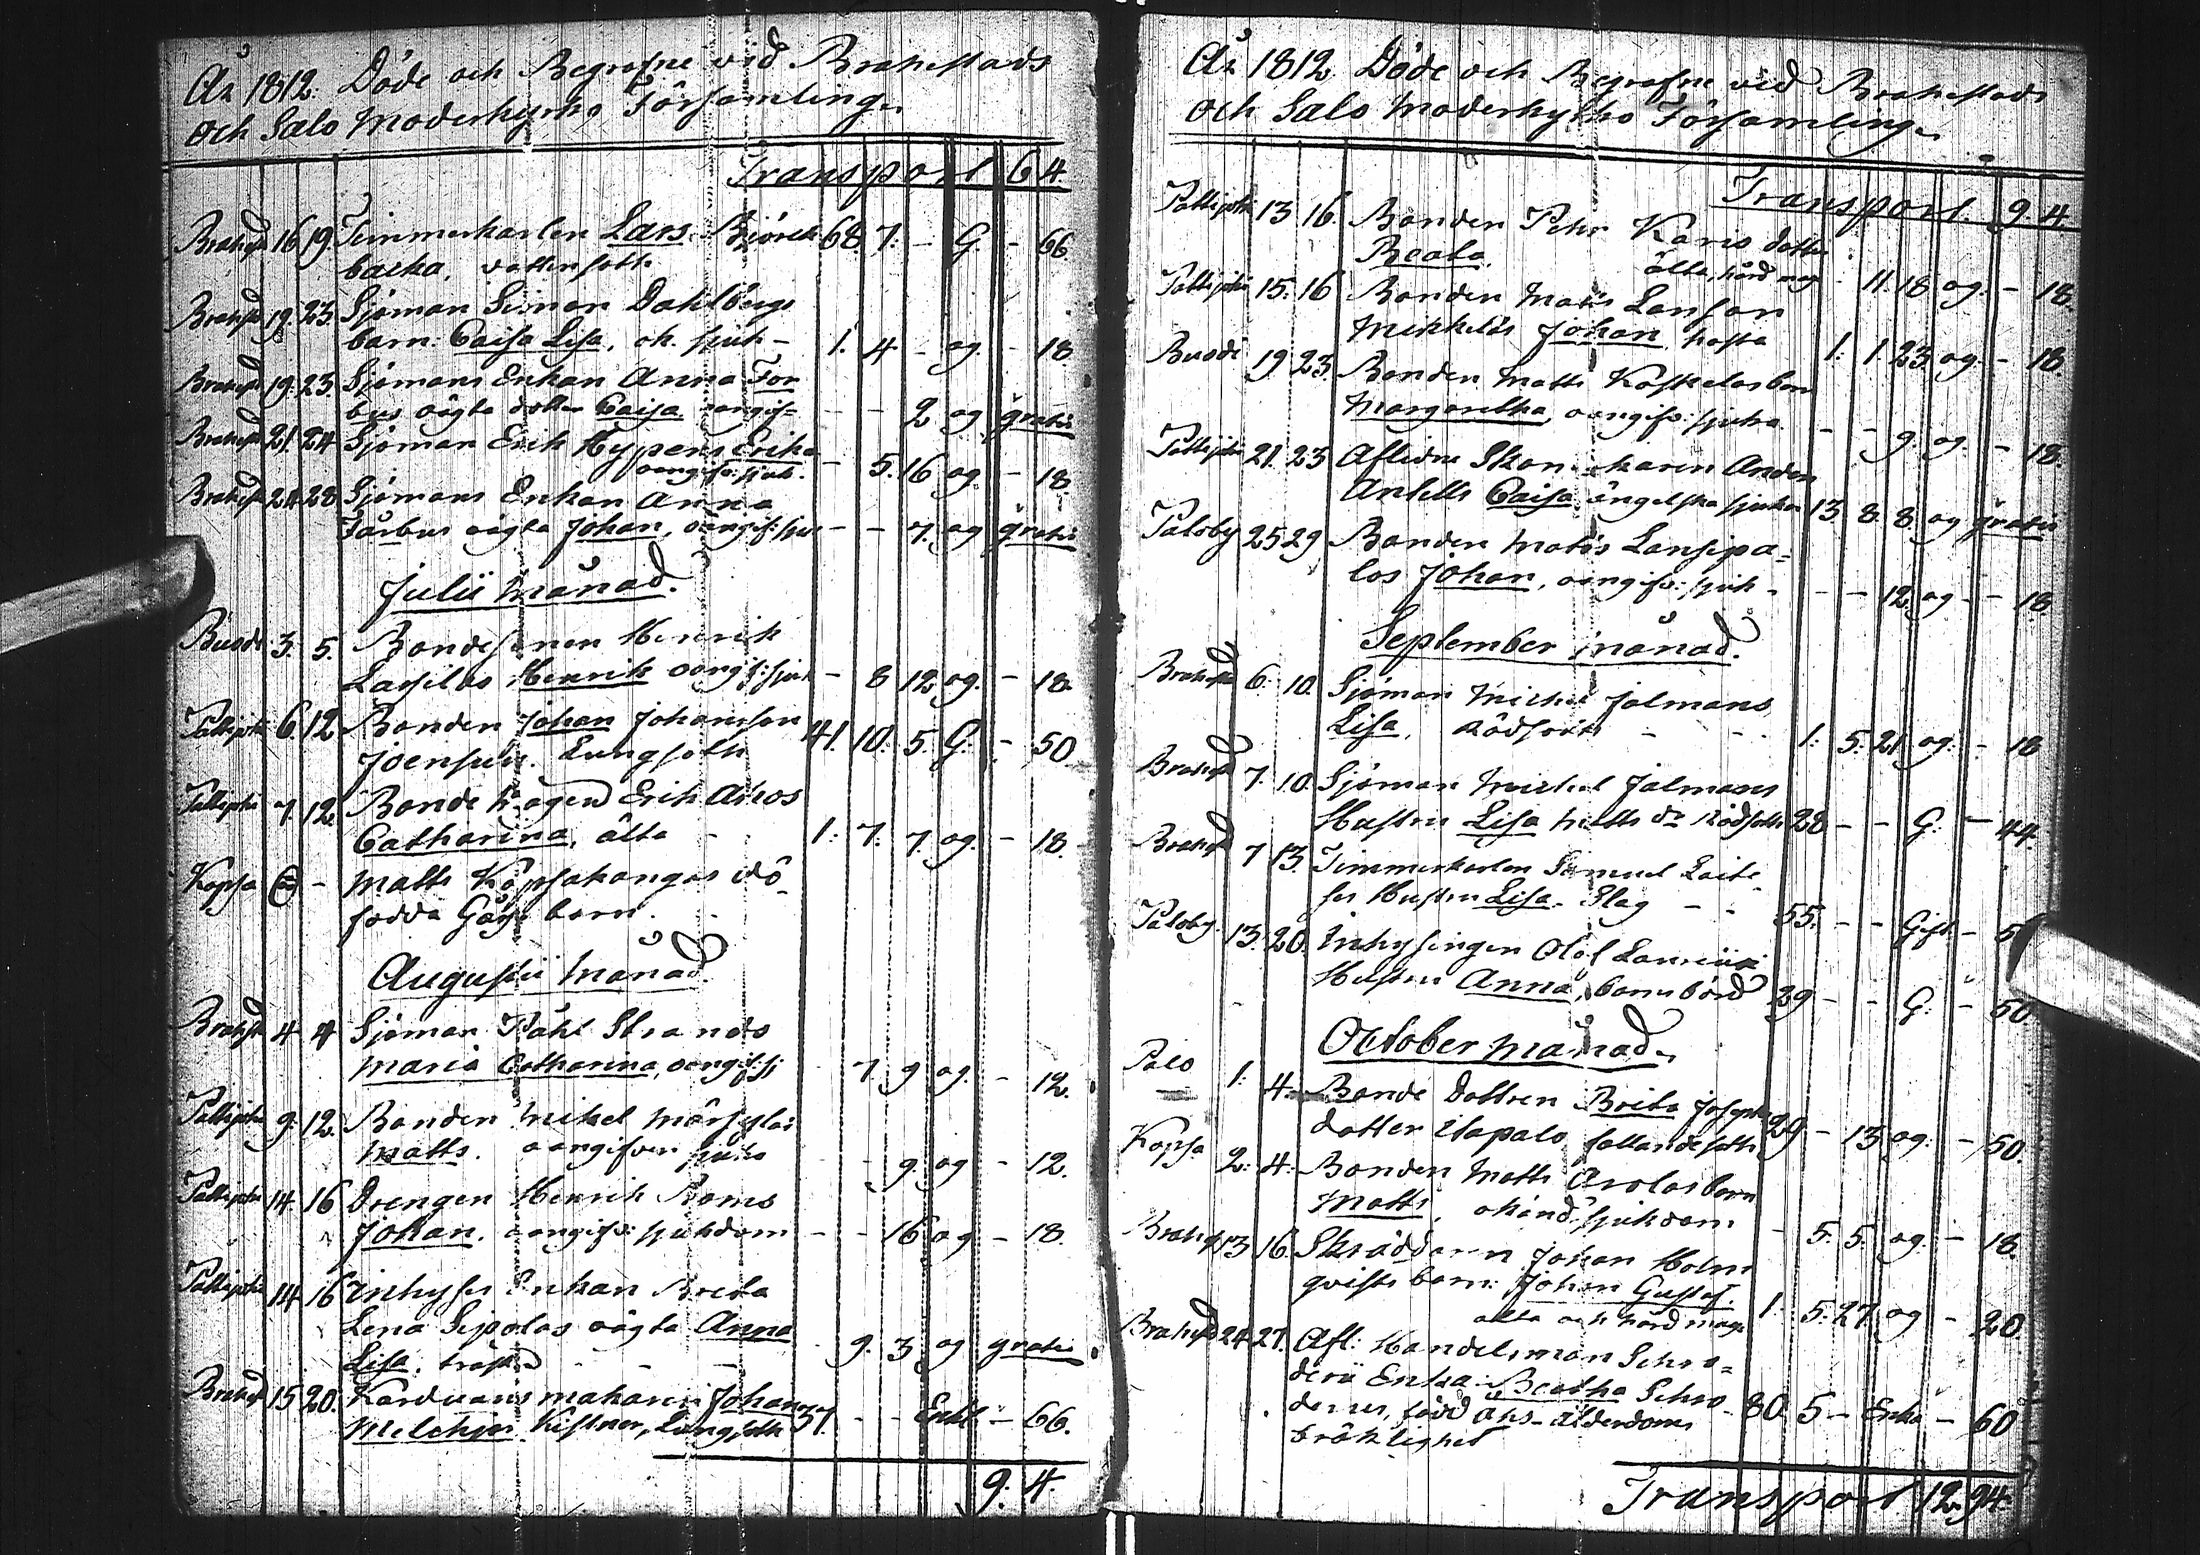 År 1812. Döde och Begrafne vid Brahestads
och Salo Moderkyrko Församling.
Transport 6 4.
Brahest 16 19 Timmerkarlen Lars Björck 68. 7. - G. - 66
backa, vattensott
Brahest 19. 23. Sjöman Simon Dahlbergs
barn: Caisa Lisa, ok. sjuk - 1. 4 - og - 18
Brahest 19. 23. Sjömans Enkan Anna For
bus oägta dotter Caisa oangif= - - 2 og gratis
Brahest 21. 24 Sjöman Erik Hypens Erika
oangifv: sjuk. - 5. 16 og - 18.
Brahest 24 28 Sjömans Enkan Anna
Forbus oägta Johan, oangif: sju - - 7. og gratis
Julii månad.
Buode 3. 5. Bondesonen Henrik
Lassilas Henrik oangif: sjuk - 8 12 og. - 18.
Pattijoki 6 12 Bonden Johan Johansson
Joensuu. Lungsott 41. 10. 5 G. - 50.
Pattijoki 7. 12. Bonde Mågen Erik Ahos
Catharina, älta - 1: 7. 7. og. - 18.
Kopsa - Matts Kopsakangas dö-
födda Gåsse barn.
Augustii månad.
Brahest 4 4 Sjöman Påhl Strands
Maria Catharina, oangif: sj - 7. 9 og. - 12.
Pattijoki 9. 12. Bonden Mikel
Matts. oangifven sjuka - - 9. og - 12.
Pattijoki 14. 16 Drengen Henrik Roms
Johan. oangifv: sjukdom - - 16 og - 18.
Pattijoki 14 16 Inhyses Enkan Brita
Lena Sipolas oägta Anna
Lisa. - - - 9. 3 og gratis
Brahest 15 20. Karduans makaren Johan
Melchior Kistner, Lungsott 57. - - Enkl. - 66.
9. 4.
År 1812 Döde och Begrafne vid Brahestads
och Salo Moderkyrko Församling.
Transport. 9 4.
Pattijoki 13 16. Bonden Pehr Karis dotter
Beata. älta, hård mag - 11 18 og. - 18.
Pattijoki 15. 16 Bonden Matts Lanson
Mikkeläs Johan, hosta 1: 1. 23 og. - 18.
Buode 19 23. Bonden Matts Koskelas barn
Margaretha, oangifv: sjuka - - 9. og. - 18.
Pattijoki 21. 23 Aflidne Skomakaren Anders
Antells Caisa, ängelska sjukan 13. 8. 8. og gratis
Paloby 25 29 Bonden Matts Lansipa=
los Johan, oangifv: sjuk - - - 12. og - - 18
September månad.
Brahest 6. 10. Sjöman Michel Jalmans
Lisa, Rödsott - - - 1: 5. 21 og. - 18
Brahest 7. 10. Sjöman Michel Jalmans
Hustru Lisa Matts dr Rödsott 28 - - G. - 44.
Brahest 7 13. Timmerkarlen Samuel Laite
ses Hustru Lisa. Slag - - 55. - - Gift. -
Paloby. 13. 20. Inhysingen Olof
Hustru Anna, barnsbörd 29 - - G. - 50
October månad.
Palo 1: 4. Bonde Dottren Brita Josephs
dotter Itapalo fallandesott 29 - 13 og: - 50.
Kopsa 2: 4. Bonden Matts Arolas barn
Matts, okänd sjukdom - 5. 5. og. - 18.
Brahest 13 16. Skräddarn Johan Holm
qvists barn: Johan Gustaf.
älta och hård mage 1: 5. 27. og - 20.
Brahest 24 27. Afl: Handelsman Schro=
derii Enka Beatha Schro
derus, född Ahs - ålderdoms 80. 5 - Enka - 60
bräklighet
Transport 12. 94.